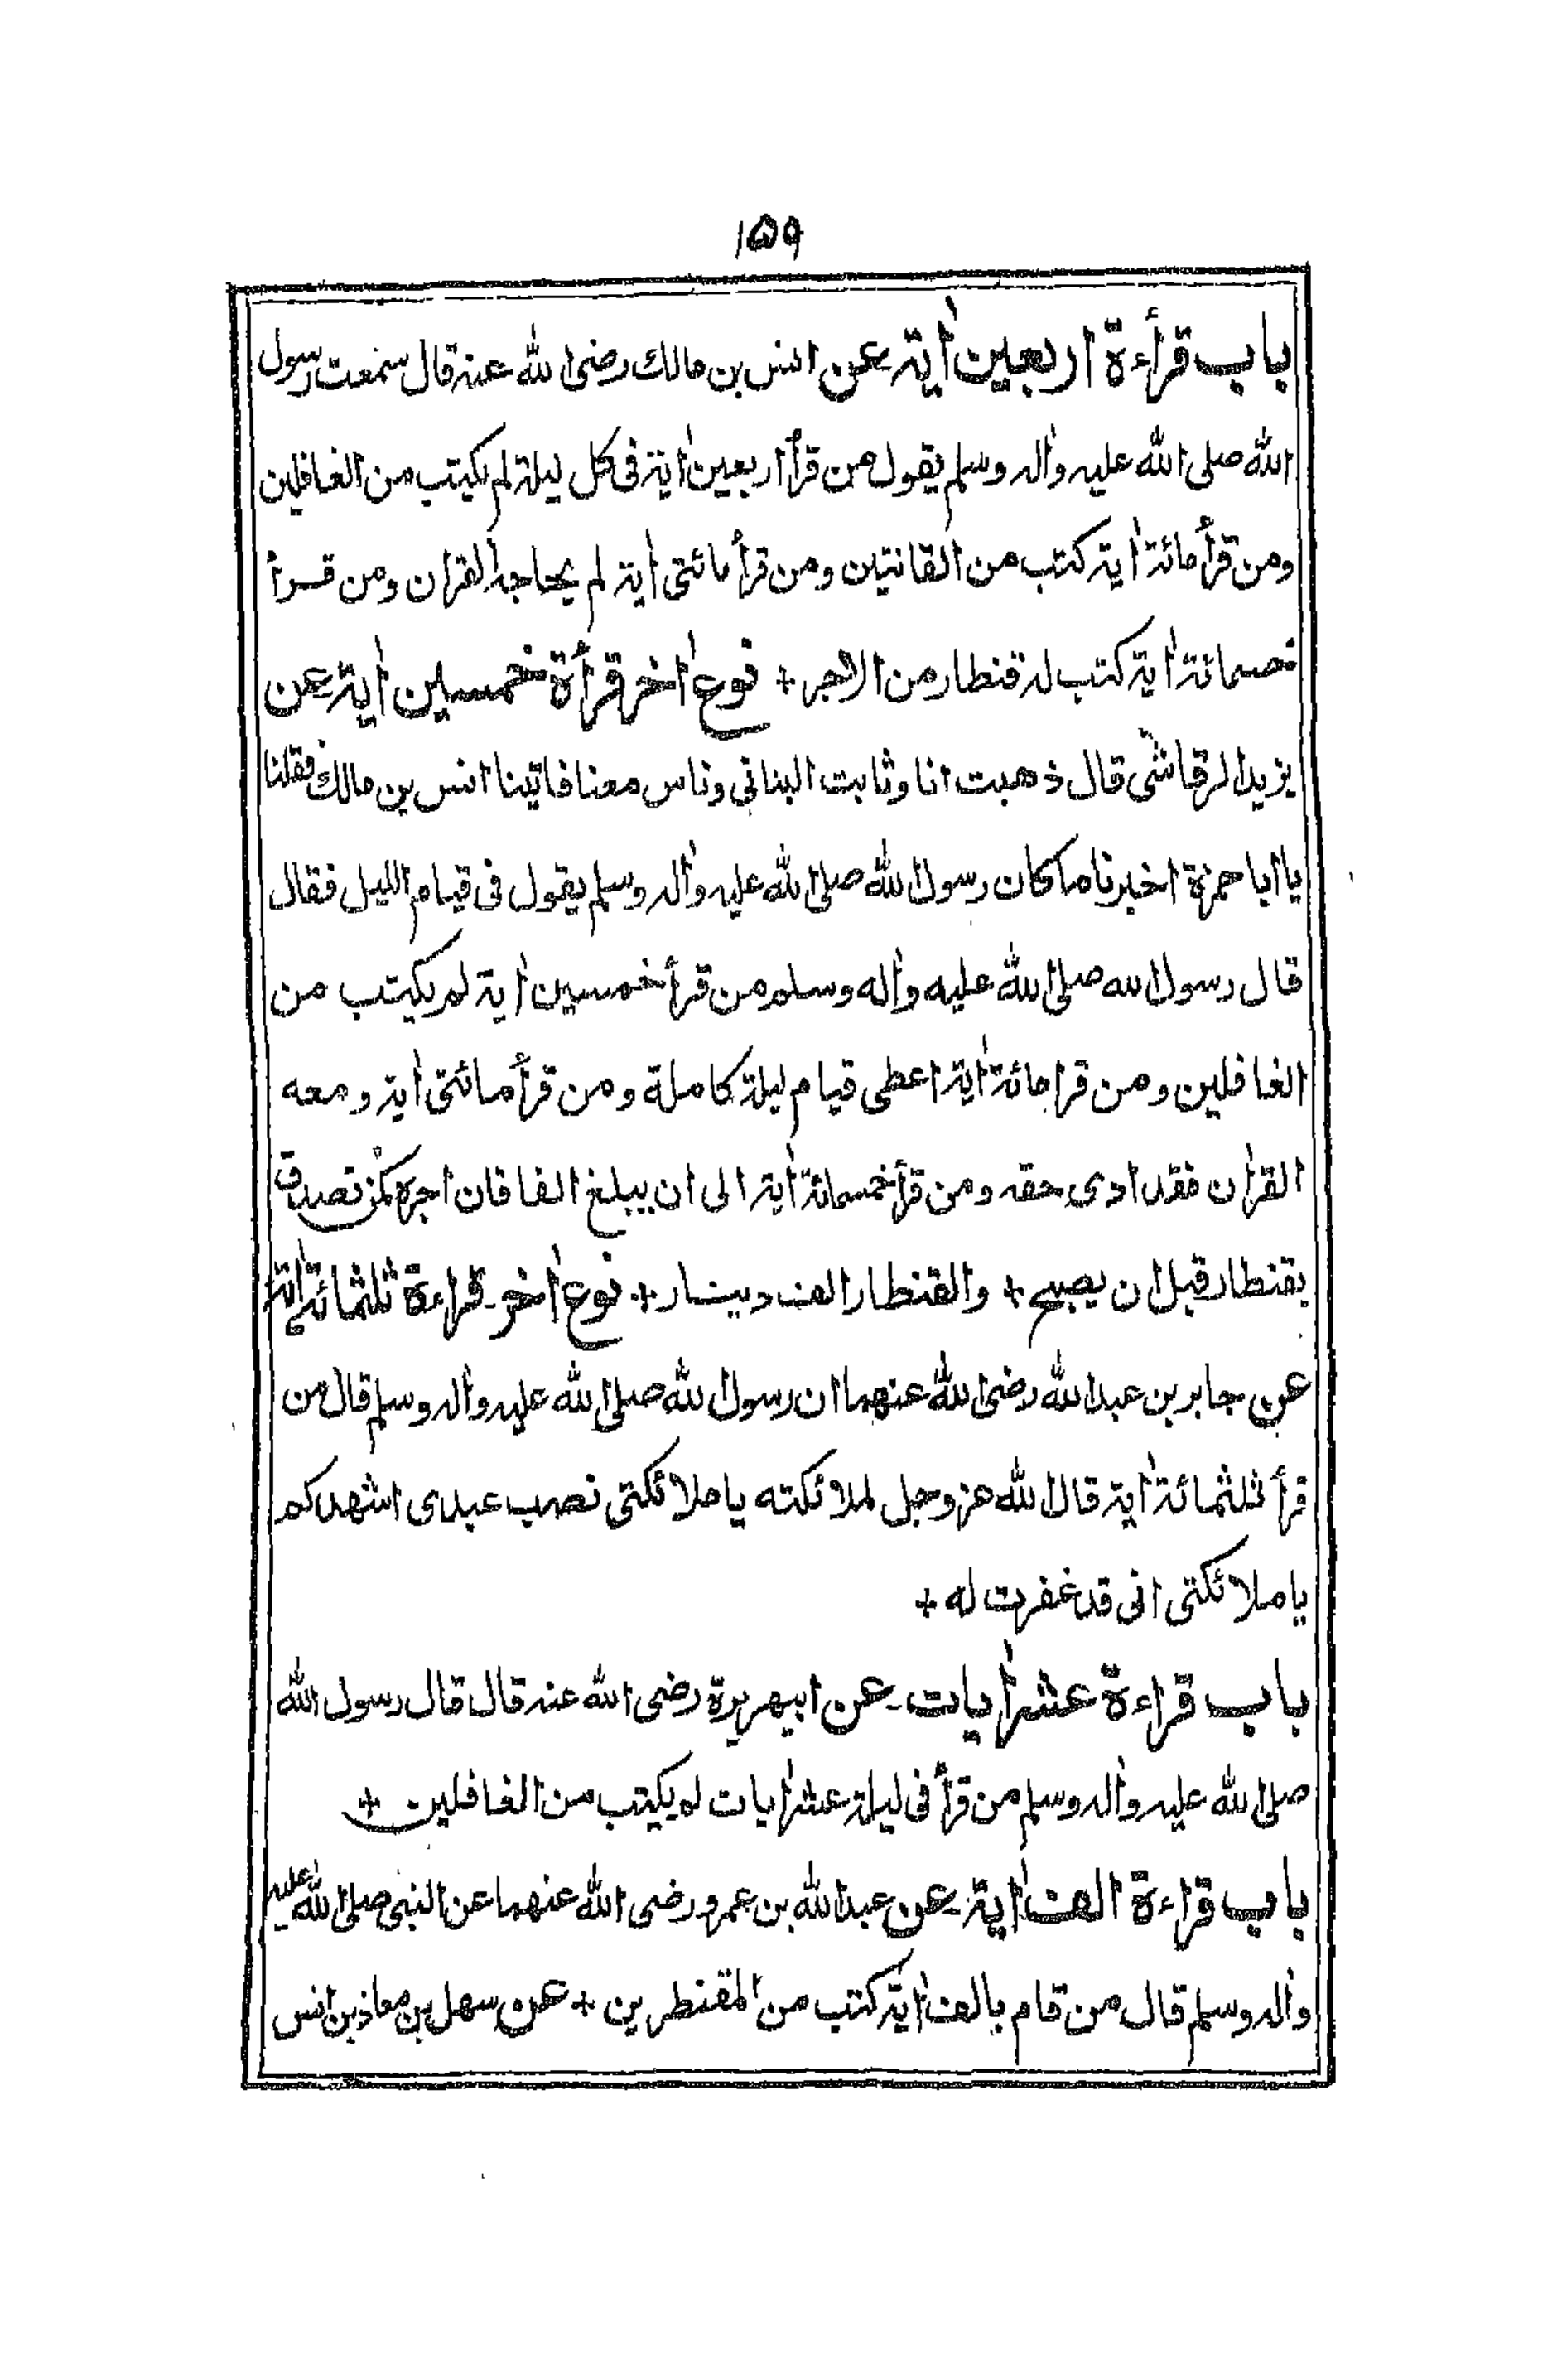 ١٥٩
باب قرأءة اربعين اٰية عن انس بن مالك رضى الله عنه قال سمعت رسول
الله صلى الله عليه واٰله وسلم يقول من قرأ اربعين اٰية فى كل ليلة لم يكتب من الغافلين
ومن قرأ مائة اٰية كتب من القانتين ومن قرأ مائتى اٰية لم يحاجه القراٰن ومن قرأ
خمسمائة اٰية كتب له قنطار من الاجر + نوع اٰخر قرأة خمسين اٰية عن
يزيد الرقاشى قال ذهبت انا وثابت البنانى وناس معنا فاتينا انس بن مالك فقلنا
يا ابا حمزة اخبرنا ما كان رسول الله صلى الله عليه واٰله وسلم يقول فى قيام الليل فقال
قال رسول الله صلى الله عليه واٰله وسلم من قرأ خمسين اٰية لم يكتب من
الغافلين ومن قرا مائة اٰية اعطى قيام ليلة كاملة ومن قرأ مائتى اٰية ومعه
القراٰن فقد ادى حقه ومن قرأ خمسمائة اٰية الى ان يبلغ الفا فان اجره كمن تصدق
بقنطار قبل ان يصبح + والقنطار الف دينار + نوع اٰخر - قراءة ثلثمائة اٰية
عن جابر بن عبد الله رضى الله عنهما ان رسول الله صلى الله عليه واٰله وسلم قال من
قرأ ثلثمائة اٰية قال الله عز وجل لملائكته يا ملائكتى نصب عبدى اشهدكم
يا ملائكتى انى قد غفرت له +
باب قراءة عشر اٰيات - عن ابيهريرة رضى الله عنه قال قال رسول الله
صلى الله عليه واٰله وسلم من قرأ فى ليلة عشر اٰيات لم يكتب من الغافلين +
باب قراءة الف اٰية - عن عبد الله بن عمرو رضى الله عنهما عن النبى صلى الله عليه
واٰله وسلم قال من قام بالف اٰية كتب من المقنطرين + عن سهل بن معاذ بن انس